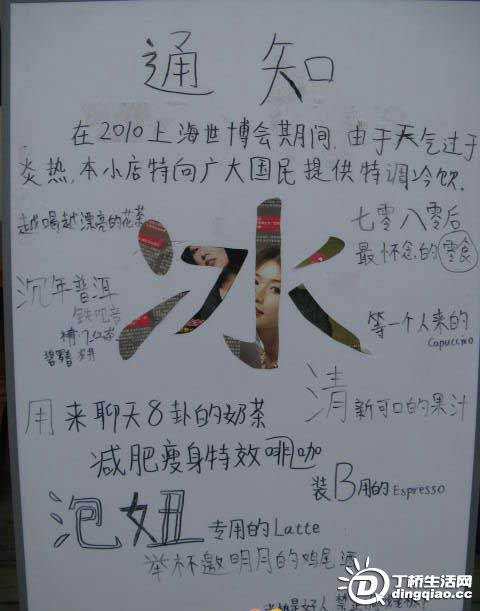 通知
在2010上海世博会期间,由于天气过于
炎热,本小店特向广大国民提供特调冷饮.
越喝越漂亮的花茶
七零八零后
最怀念的零食
冰
沉年普洱
铁观音
等一个人来的
Capuccino
清新可口的果汁
用来聊天8卦的奶茶
减肥瘦身特效啡咖
装B用的Espresso
泡妞专用的Latte
举杯邀明月的鸡尾酒
丁桥生活网
dingqiao.cc